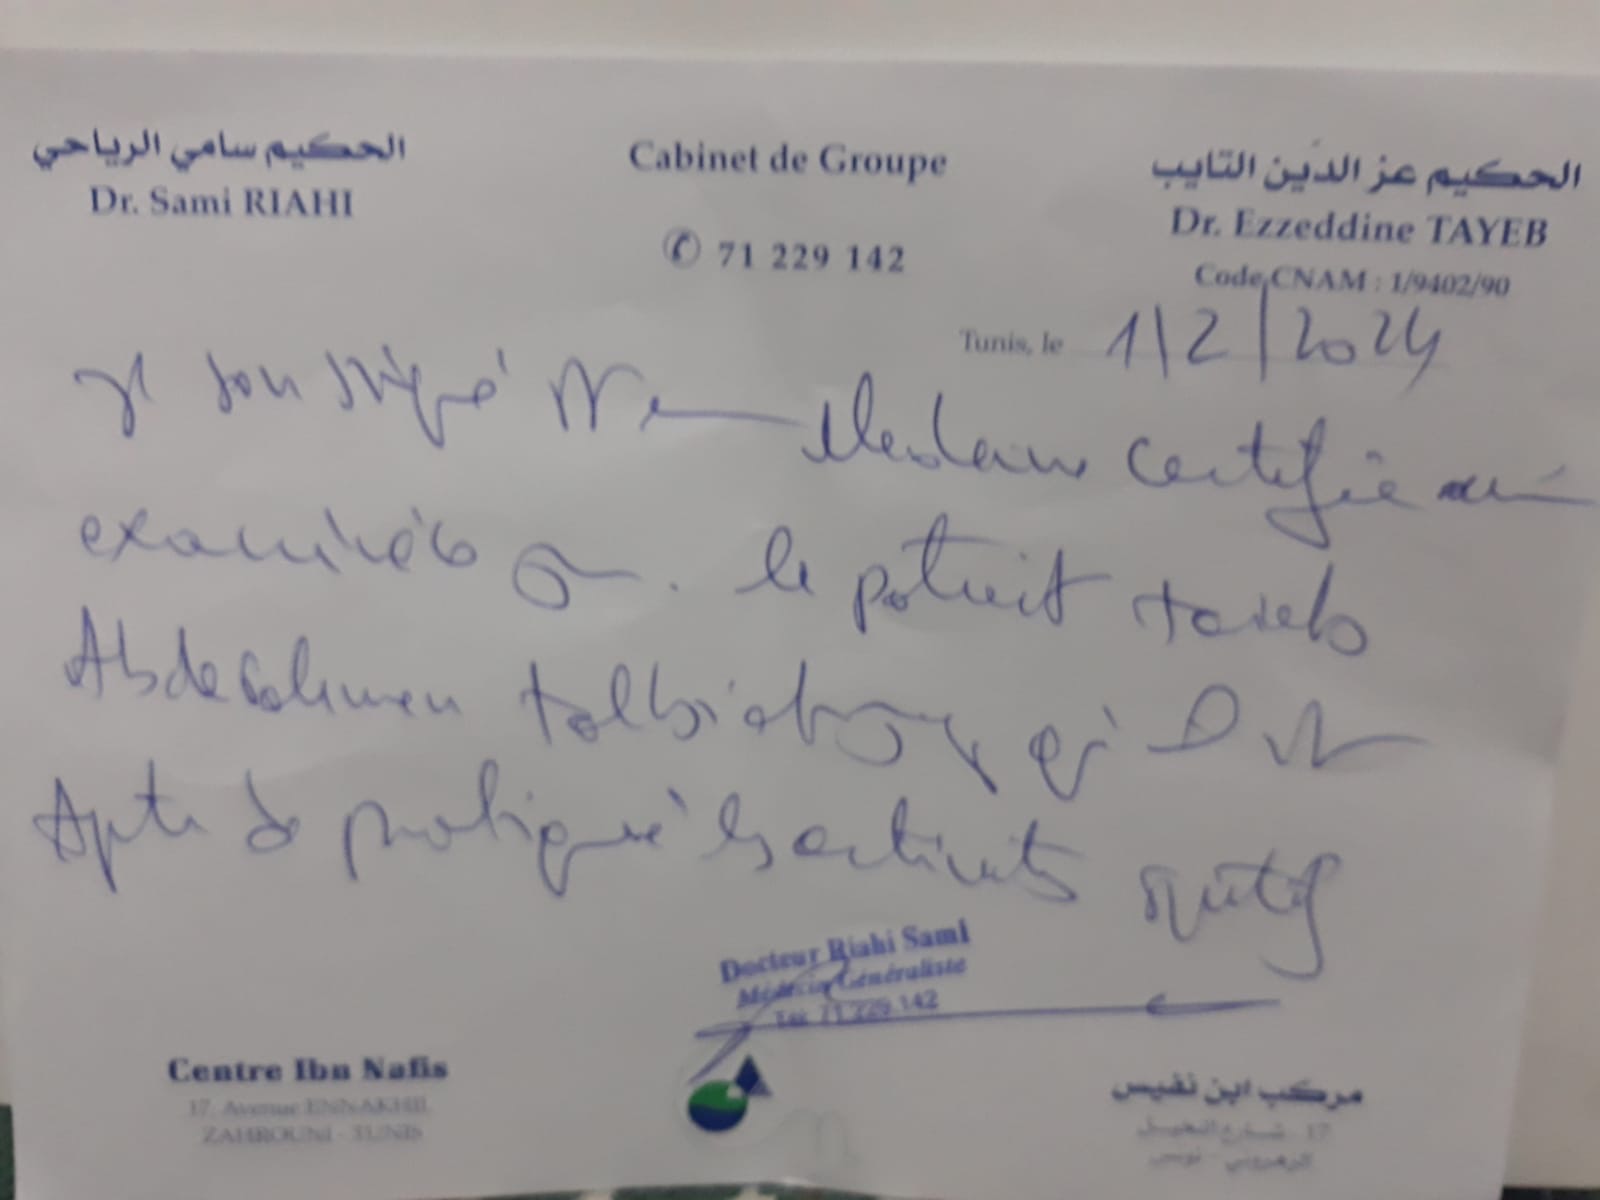 الحكيم سامي الرياحي
Dr. Sami RIAHI
Cabinet de Groupe
✆ 71 229 142
الحكيم عز الدين التايب
Dr. Ezzeddine TAYEB
Code CNAM : 1/9402/90
Tunis, le 1/2/2024
Je soussigné certifie
examiné le patient
Abderahmen
Apte de pratiqué les activités
Docteur Riahi Sami
Médecin Généraliste
Tél. 71 229 142
Centre Ibn Nafis
17, Avenue ENNAKHIL
ZAHROUNI - TUNIS
مركب ابن نفيس
17 شارع النخيل
الزهروني - تونس